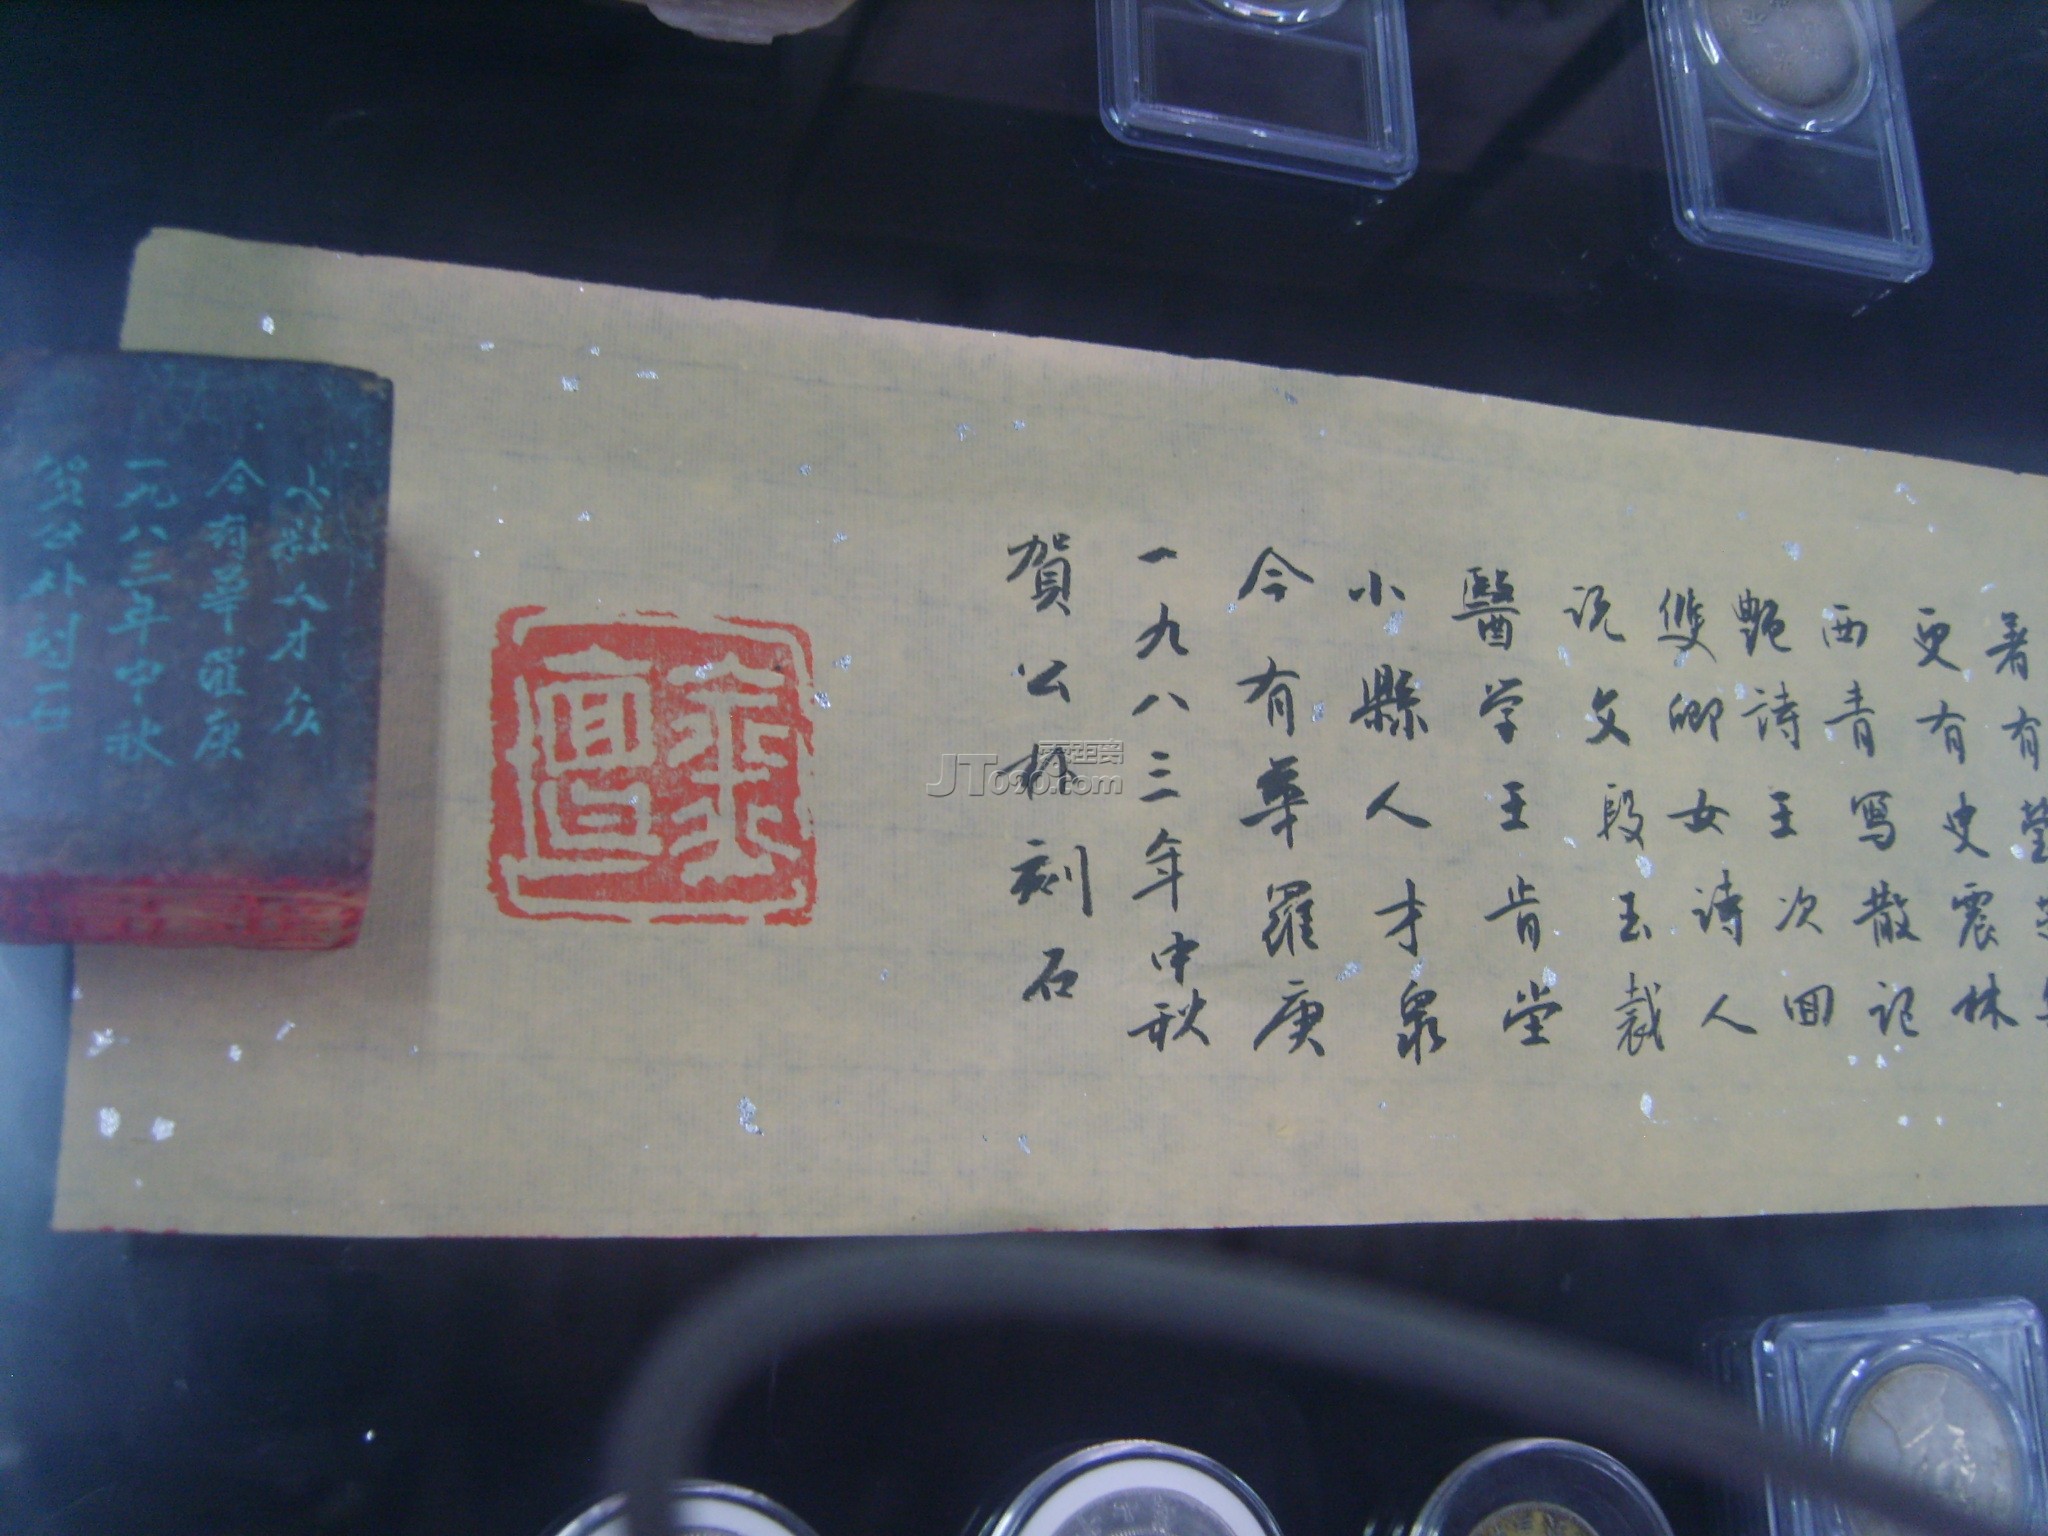 著有
更有史震林
西青寫散記
艶詩王次回
雙卿女詩人
说文段玉裁
醫学王肯堂
小縣人才眾
今有華羅庚
一九八三年中秋
賀公朴刻石
小縣人才众
今有華羅庚
一九八三年中秋
公朴刻石
JT090.com